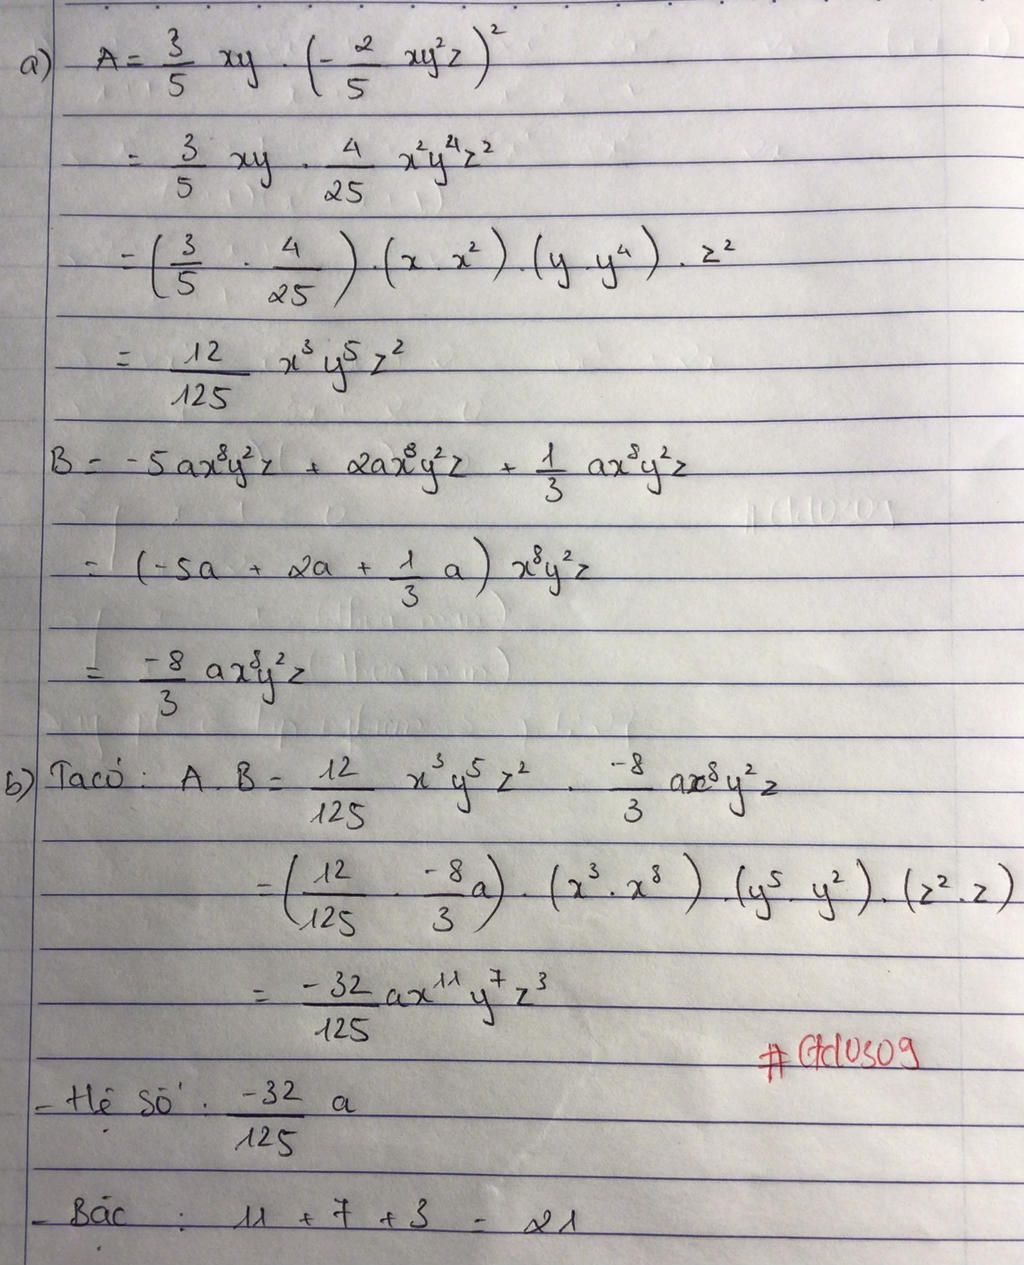 a) A = 3/5 xy . (- 2/5 xy²z)²
= 3/5 xy . 4/25 x²y⁴z²
= (3/5 . 4/25) . (x . x²) . (y . y⁴) . z²
= 12/125 x³y⁵z²
B = -5ax⁸y²z + 2ax⁸y²z + 1/3 ax⁸y²z
= (-5a + 2a + 1/3 a) x⁸y²z
= -8/3 ax⁸y²z
b) Ta có: A . B = 12/125 x³y⁵z² . -8/3 ax⁸y²z
= (12/125 . -8/3 a) . (x³ . x⁸) . (y⁵ . y²) . (z² . z)
= -32/125 ax¹¹y⁷z³
- Hệ số : -32/125 a
- Bậc : 11 + 7 + 3 = 21